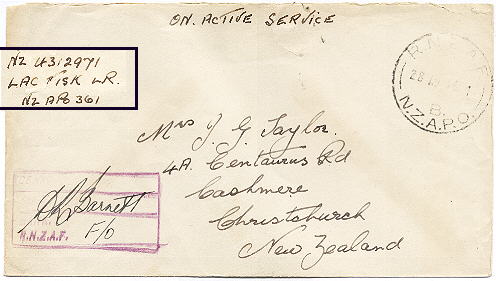 ON ACTIVE SERVICE
NZ 4312971
LAC FISK L.R.
NZ APO 361
R.N.Z.A.F.
28
B.
N.Z.A.P.O.
Mrs J. G. Taylor.
4A. Centaurus Rd
Cashmere
Christchurch
New Zealand
Barnett
F/O
R.N.Z.A.F.